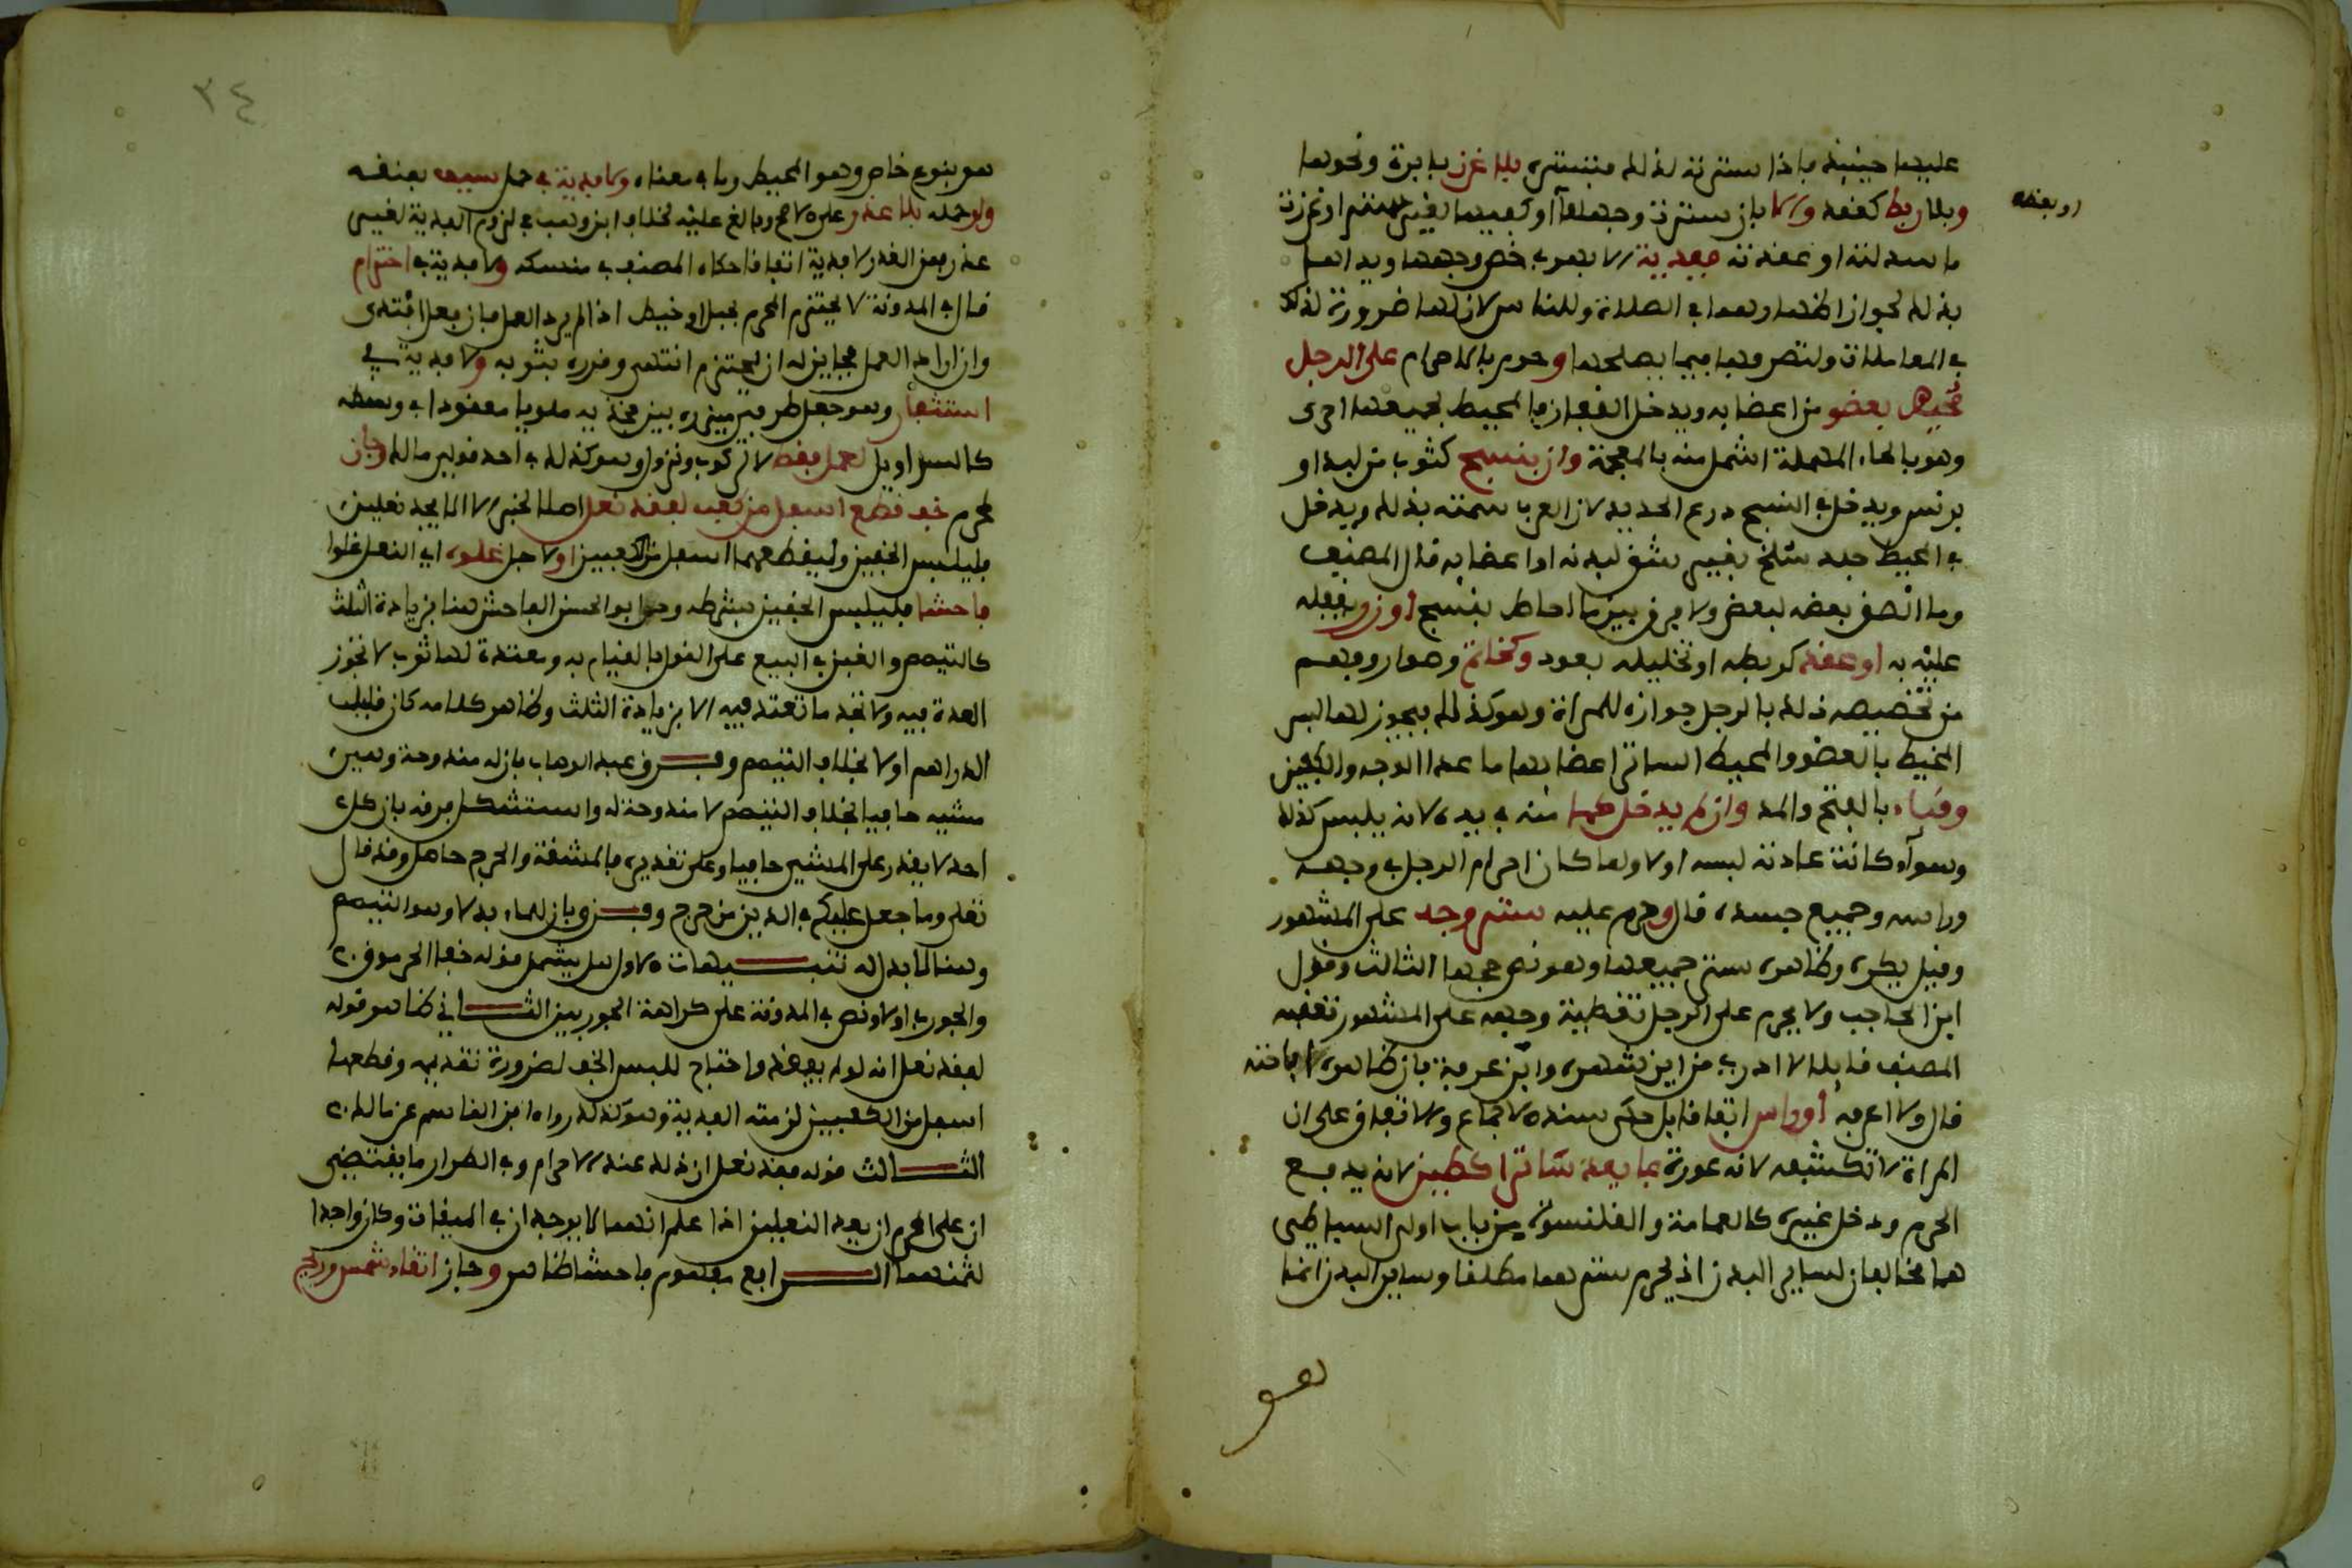 عليهما حينئذ فإذا سترته لذلك فتستره بلا غرز بإبرة ونحوها
وبلا ربط كعقد وإلا بأن سترت وجهها أو كفيها لغير ستر أو غرزت
أو بعضه
ما سدلته أو عقدته ففدية لا بعض وجهها ويداها
بذلك لجواز إظهارهما في الصلاة وللناس لأن لها ضرورة لذلك
في المعاملات ولتصرفها فيما يصلحها وحرم بالإحرام على الرجل
محيط بعضو من أعضائه ويدخل القفاز فالمحيط بجميعها أحرى
وهو بالحاء المهملة أشمل منه بالمعجمة وإن بنسج كثوب من لبد أو
برنس ويدخل في النسج درع الحديد لأن العرب سمته بذلك ويدخل
في المحيط جلد سلخ بغير شق لبدنه أو أعضائه قال المصنف
وما الصق بعضه لبعض ولا فرق بين ما أحاط بنسج أو زر يقفله
عليه به أو عقد كربطه أو تخليله بعود وكخاتم وسوار وفهم
من تخصيصه ذلك بالرجل جوازه للمرأة وهو كذلك فيجوز لها لبس
المخيط بالعضو والمحيط الساتر أعضائها ما عدا الوجه والكفين
وقباء بالفتح والمد وإن لم يدخل كما منه في يده لأنه يلبس كذلك
وسواء كانت عادته لبسه أو لا ولما كان إحرام الرجل في وجهه
ورأسه وجميع جسده قال وحرم عليه ستر وجه على المشهور
وقيل يكره وظاهره ستر جميعها وهو نص حجها الثالث وقول
ابن الحاجب ولا يحرم على الرجل تغطية وجهه على المشهور تعقبه
المصنف قائلا لا أدري من أين شهره وابن عرفة بأن ظاهره إباحته
قال ولا أعرفه أو رأس اتفاقا بل حكى سنده الإجماع والاتفاق على أن
المرأة لا تكشفه لأنه عورة بما يعد ساترا كطين لأنه يدفع
الحرم ودخل غيره كالعمامة والقلنسوة من باب أولى البساطي
هما مخالفان لسائر البدن إذ يحرم سترهما مطلقا وسائر البدن إنما
هو
٣٤
هو بنوع خاص وهو المحيط وما في معناه ولا فدية في حمل سيف بعنقه
ولو حمله بلا عذر على الأصح وبالغ عليه لخلاف ابن وهب في لزوم الفدية لغير
عذر فمن العذر لا فدية اتفاقا حكاه المصنف في منسكه ولا فدية في احتزام
قال في المدونة لا يحتزم المحرم بحبل أو خيط إذا لم يرد العمل فإن فعل افتدى
وإن أراد العمل فجائز له أن يحتزم انتهى وقرره بثوبه ولا فدية في
استثفار وهو جعل طرفي مئزره بين فخذيه ملويا معقودا في وسطه
كالسراويل لعمل فقط لا لركوب ونزول وهو كذلك في أحد قولي مالك وجاز
لمحرم خف قطع أسفل من كعب لفقد نعل أصله لخبر إلا ألا يجد نعلين
فليلبس الخفين وليقطعهما أسفل من الكعبين أو لأجل غلوه أي النعل غلوا
فاحشا فليلبس الخفين بشرطه وحد أبو الحسن الفاحش هنا بزيادة الثلث
كالتيمم والغبن في البيع على القول بالقيام به ومعتدة لها ثوب لا تجوز
العدة فيه ولا تجد ما تعتد فيه إلا بزيادة الثلث وظاهر كلامه كان قليل
الدراهم أو لا بخلاف التيمم وفرق عبد الوهاب بأن له مندوحة وهي
مشيه حافيا بخلاف التيمم لا مندوحة له واستشكل فرقه بأن كل
أحد لا يقدر على المشي حافيا وعلى تقديره فالمشقة والحرج حاصل وقد قال
تعالى وما جعل عليكم في الدين من حرج وفرق بأن للماء بدلا وهو التيمم
وهنا لا بدل له تنبيهات الأول هل يشمل قوله خفا الجرموق
والجورب أو لا ونص في المدونة على كراهة الجوربين الثاني ظاهر قوله
لفقد نعل أنه لو لم يفقده واحتاج للبس الخف لضرورة تقدمه وقطعها
أسفل من الكعبين لزمته الفدية وهو كذلك رواه ابن القاسم عن مالك
الثالث قوله فقد نعل أن ذلك عند الإحرام وفي الطراز ما يقتضي
أن على المحرم أن يعد النعلين إذا علم أنهما لا يوجدان في الميقات وكان واجدا
لثمنهما الرابع مفهوم فاحشا ظاهر وجاز اتقاء شمس وريح